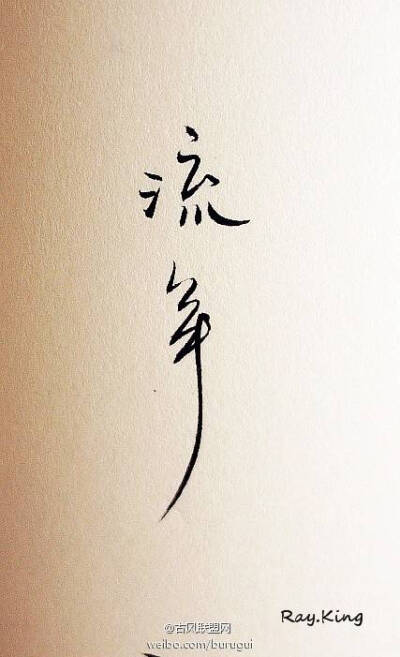 流年
Ray.King
@古风联盟网
weibo.com/burugui